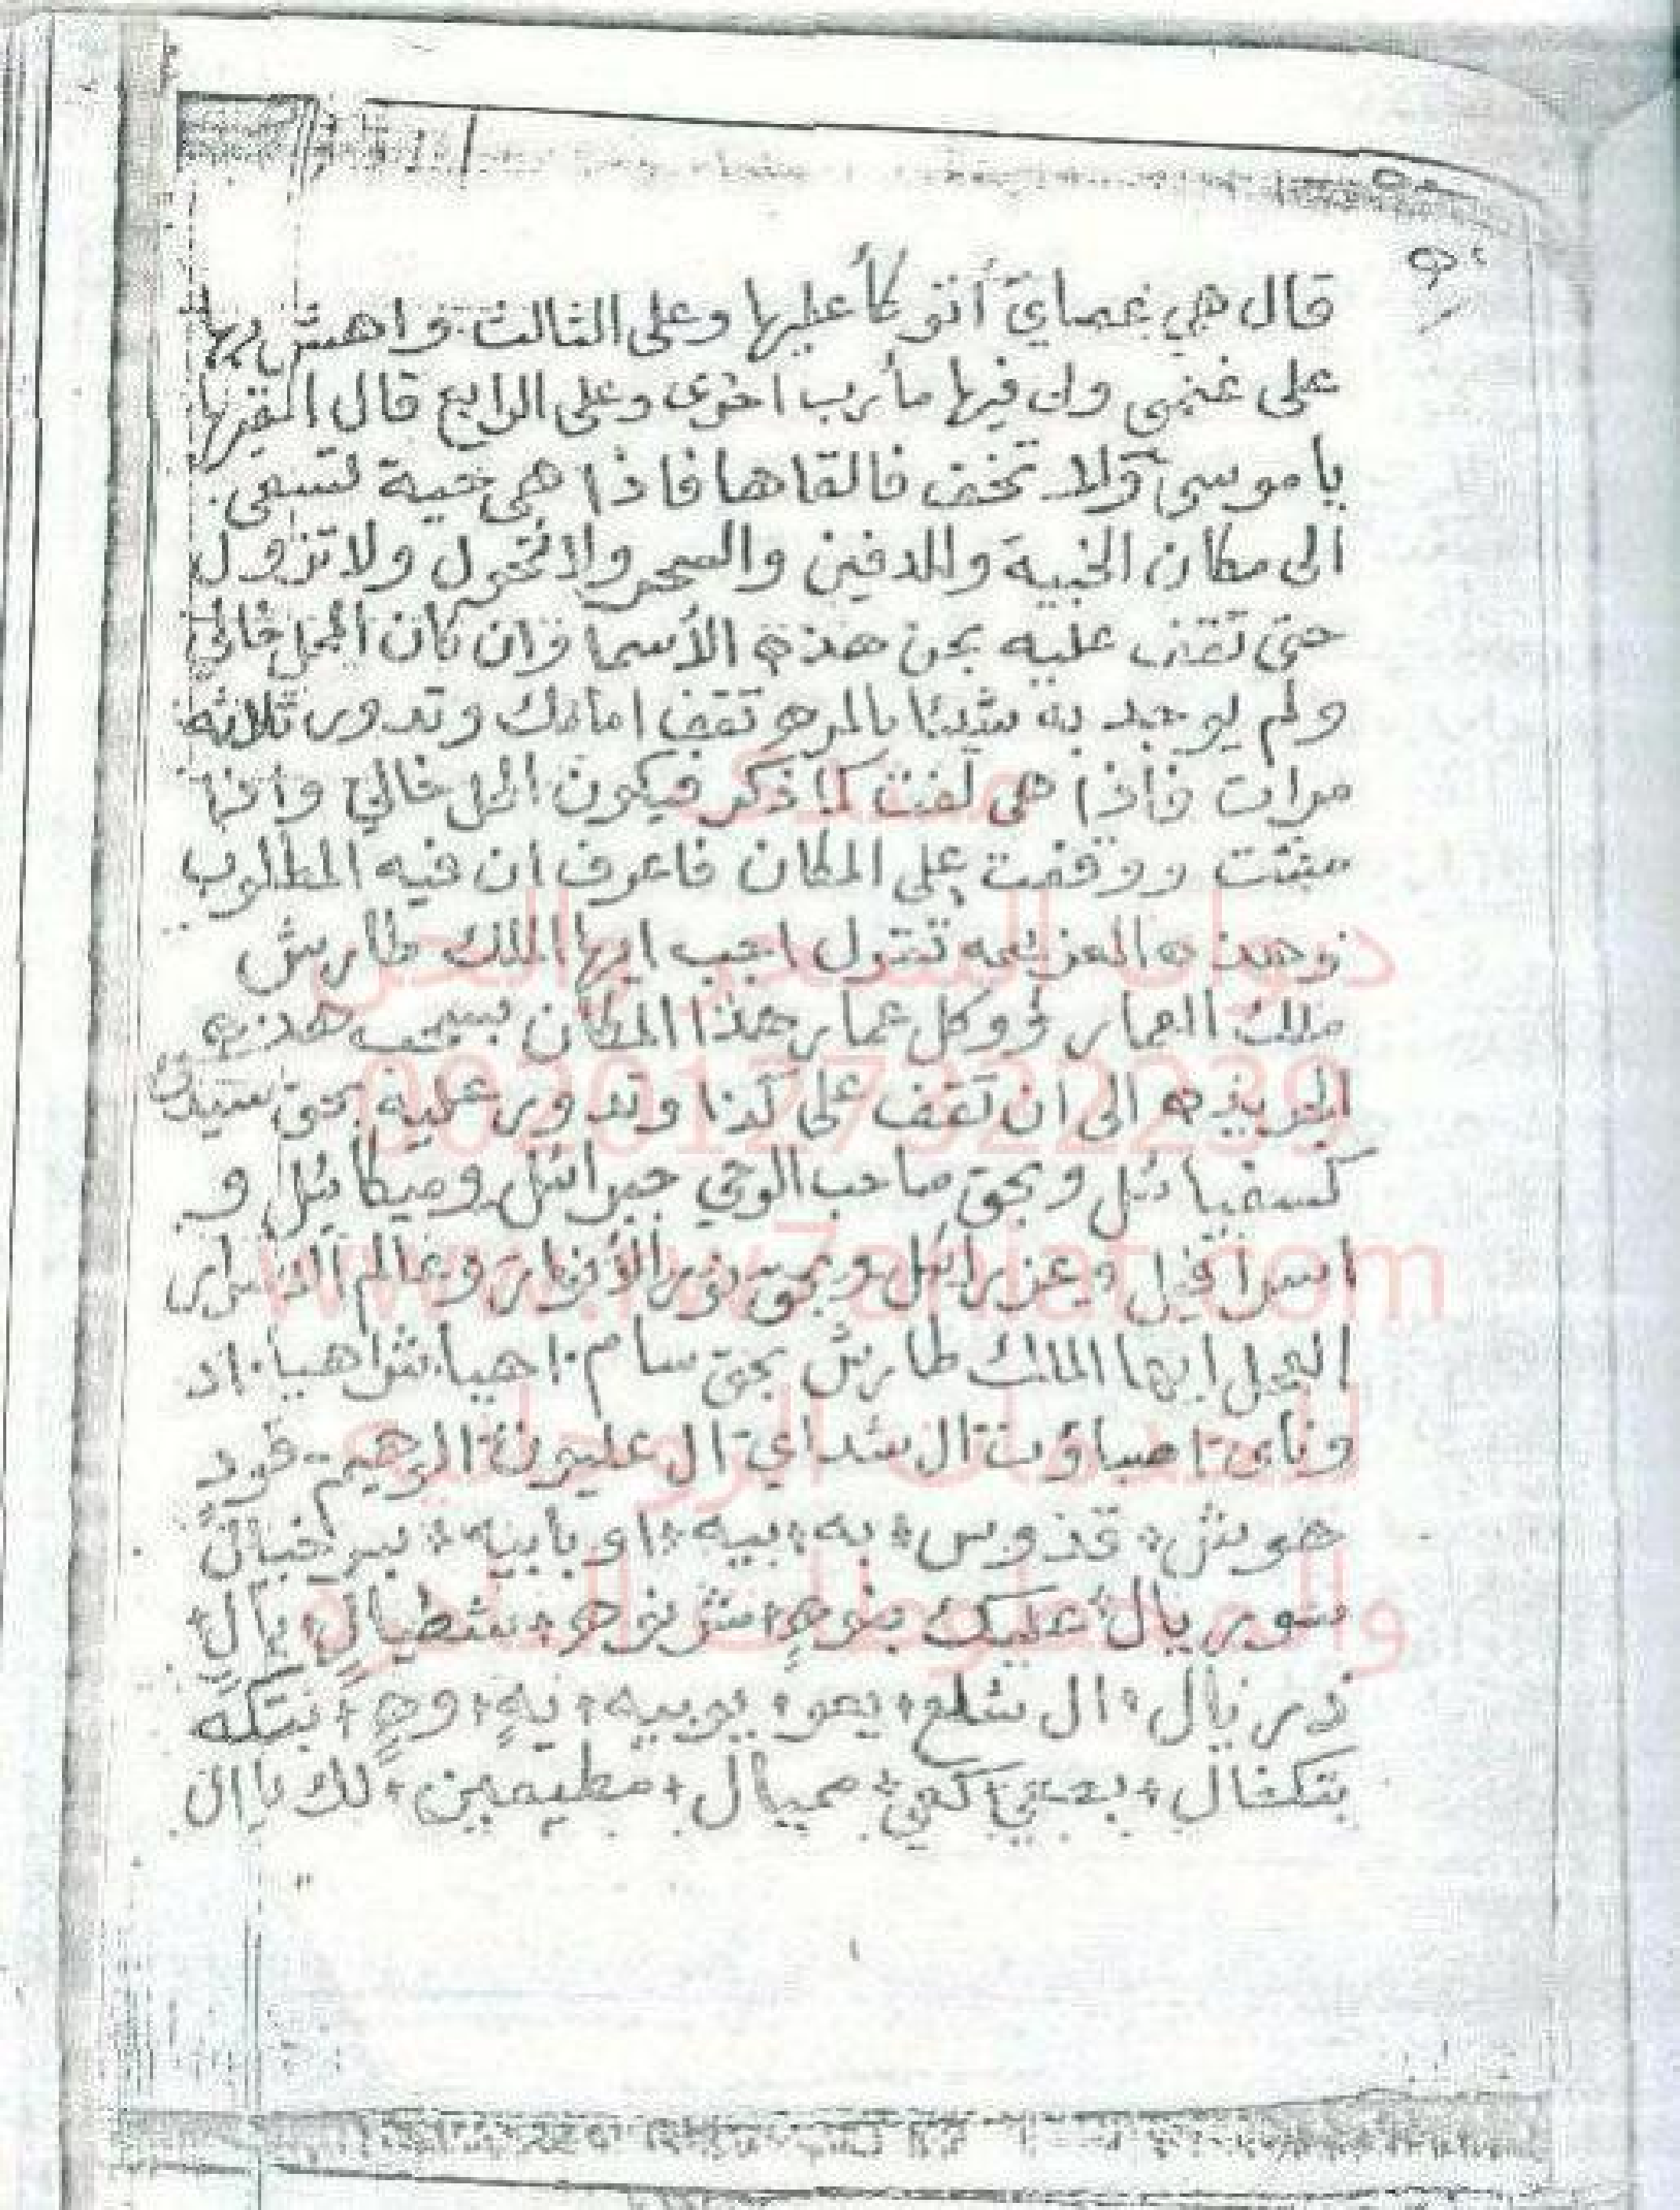 قال هي عصاي أتوكأ عليها وعلى الثالث واهش بها
على غنمي ولي فيها مأرب اخرى وعلى الرابع قال القيها
يا موسى ولا تخف فالقاها فاذا هي حية تسعى
الى مكان الخبية والدفين والسحر ولا تحول ولا تزول
حتى تقف عليه بحق هذه الأسما وان كان المحل خالي
ولم يوجد به شيئا بالمره تقف امامك وتدور ثلاثه
مرات فاذا هي لفت كما ذكر فيكون المحل خالي واذا
مشت ووقفت على المكان فاعرف ان فيه المطلوب
وهذه العزيمه تقول اجب ايها الملك طارش
ملك العمار ووكل عمار هذا المكان بسحب هذه
الجريده الى ان تقف على كذا وتدور عليه بحق سيدك
كسفيائل وبحق صاحب الوحي جبرائيل وميكائيل و
اسرافيل وعزرائيل وبحق نور الأنوار وعالم الاسرار
العجل ايها الملك طارش بحق سام اهيا شراهيا اد
وناى اصباؤت ال شداي ال عليون الوهيم
قدوس به بيه
سوريال عليك
ال شلع يهو يوبيه يه وه بتكه
بتكفال مطيعين لك يا ال
منتدى
ديوان السحر والجن
0020127322239
للخدمات الروحانية